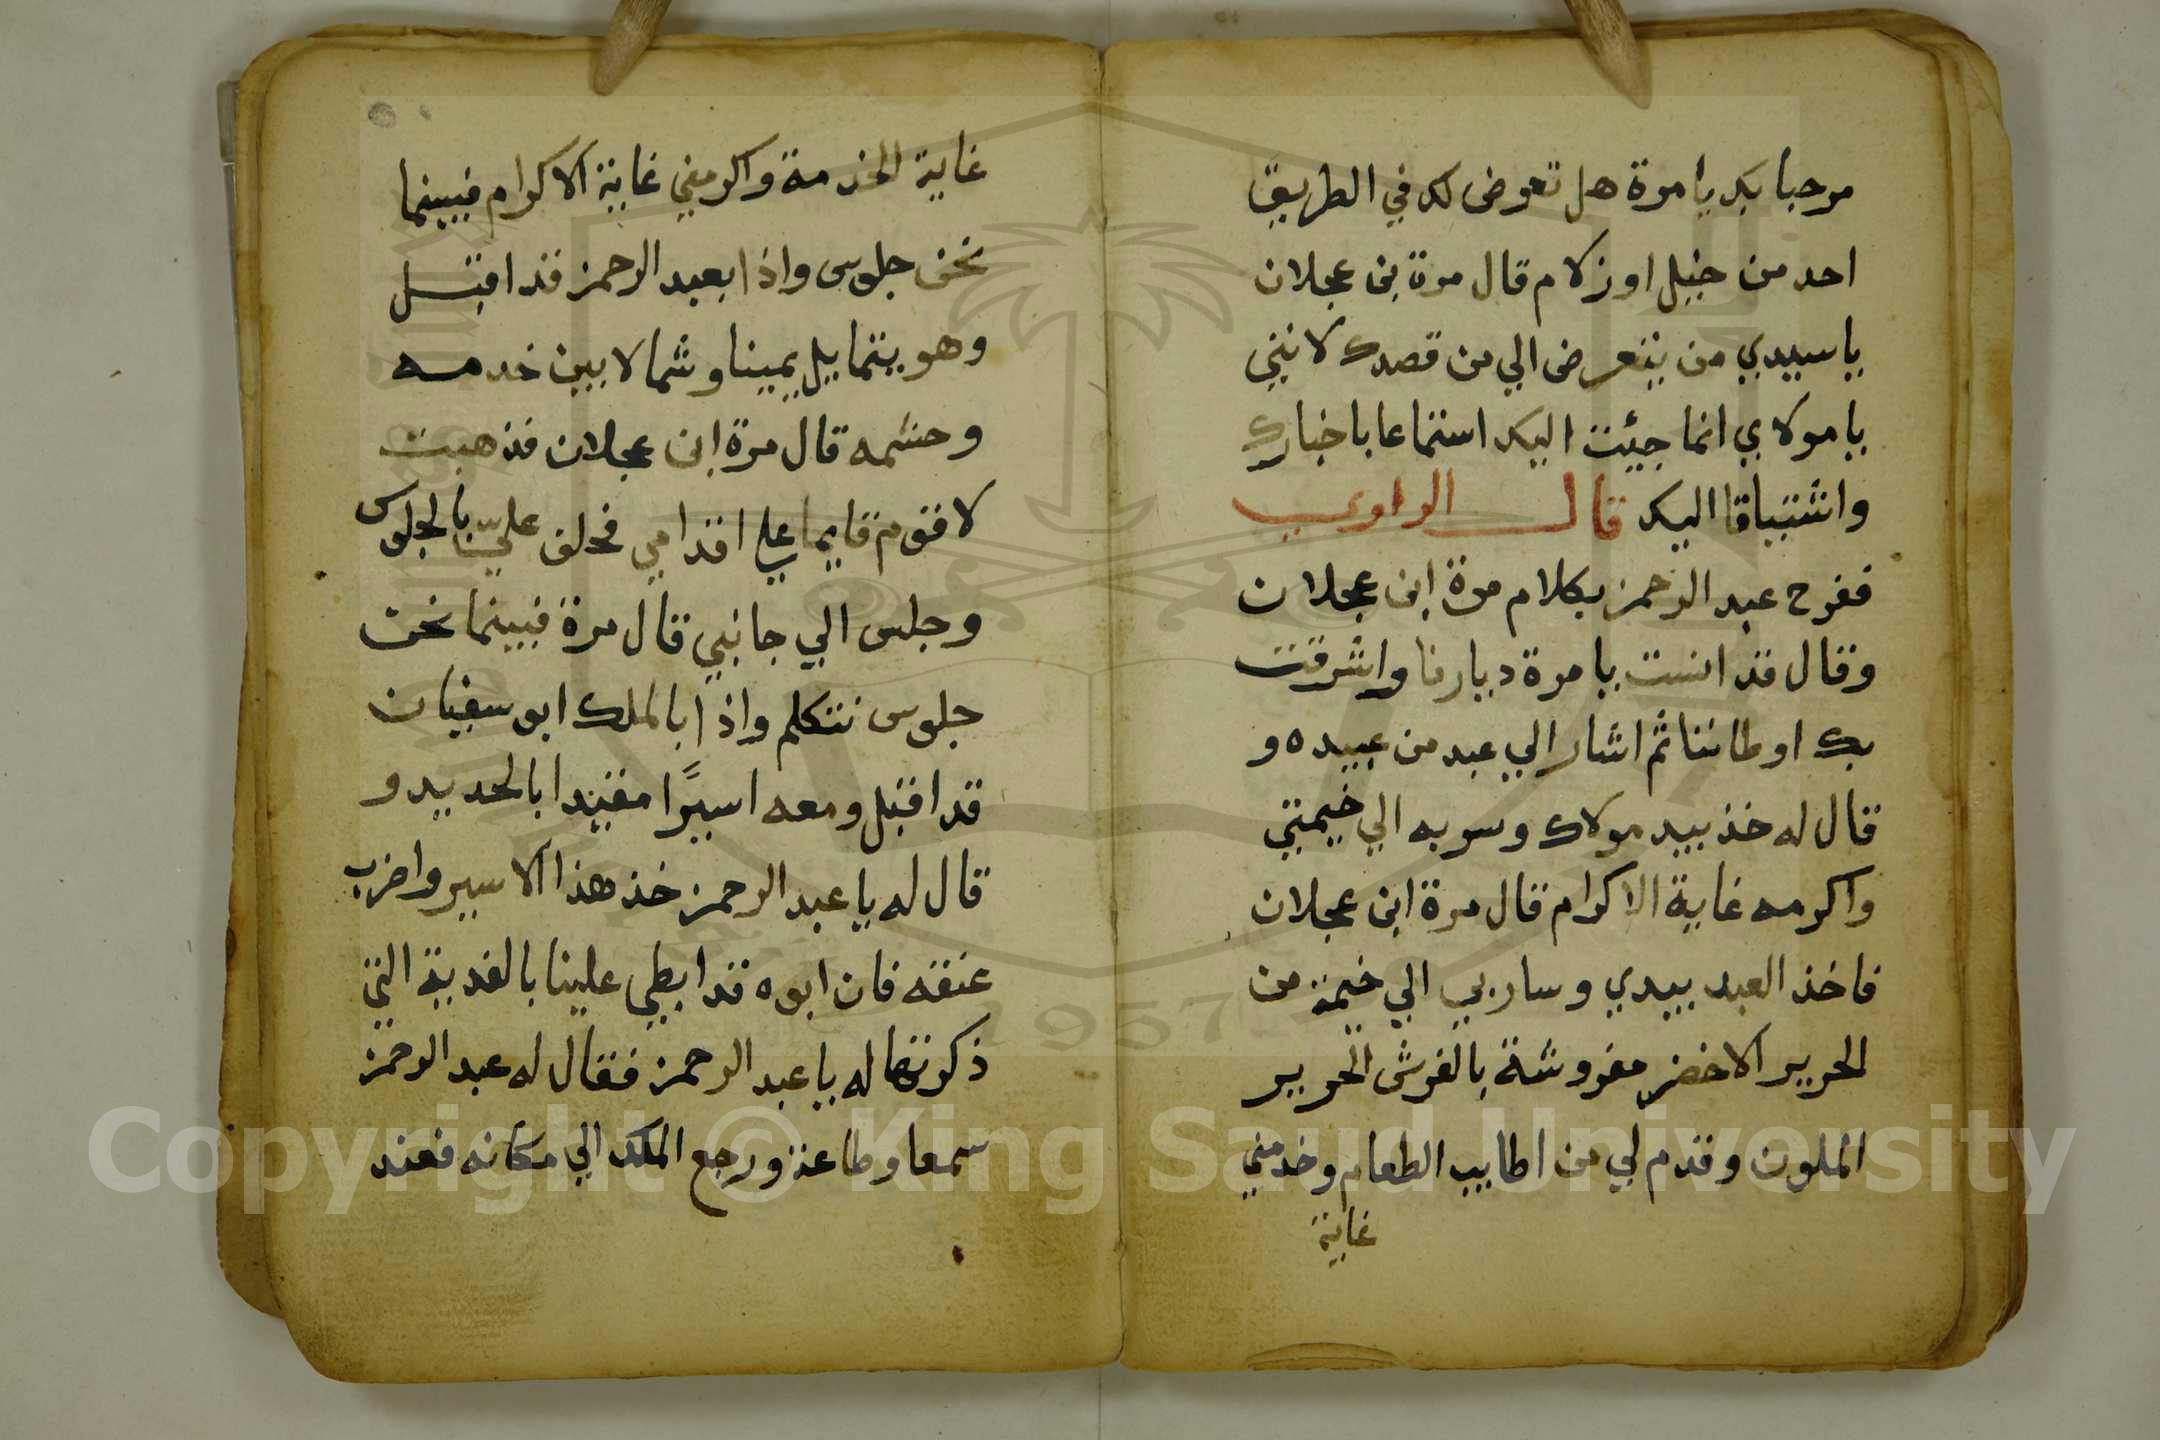 مرحبا بك يا مرة هل تعرض لك في الطريق
احد من خيل او زلام قال مرة بن عجلان
يا سيدي من يتعرض الي من قصدك لانني
يا مولاي انما جيئت اليك استماعا باخبارك
واشتياقا اليك قال الراوي
ففرح عبد الرحمن بكلام مرة ابن عجلان
وقال قد انست يا مرة ديارنا واشرقت
بك اوطاننا ثم اشار الي عبد من عبيده و
قال له خذ بيد مولاك وسر به الي خيمتي
واكرمه غاية الاكرام قال مرة ابن عجلان
فاخذ العبد بيدي وسار بي الي خيمة من
الحرير الاخضر مفروشة بالفرش الحرير
الملون وقدم لي من اطايب الطعام وخدمني
غاية
غاية الخدمة واكرمني غاية الاكرام فبينما
نحن جلوس واذا بعبد الرحمن قد اقبل
وهو يتمايل يمينا وشمالا بين خدمه
وحشمه قال مرة ابن عجلان فذهبت
لاقوم قايما علي اقدامي فحلف عليّ بالجلوس
وجلس الي جانبي قال مرة فبينما نحن
جلوس نتكلم واذا بالملك ابو سفيان
قد اقبل ومعه اسيرًا مقيدا بالحديد و
قال له يا عبد الرحمن خذ هذا الاسير واضرب
عنقه فان ابوه قد ابطي علينا بالفدية التي
ذكرتها له يا عبد الرحمن فقال له عبد الرحمن
سمعا وطاعة ورجع الملك الي مكانه فعند
1957
Copyright © King Saud University